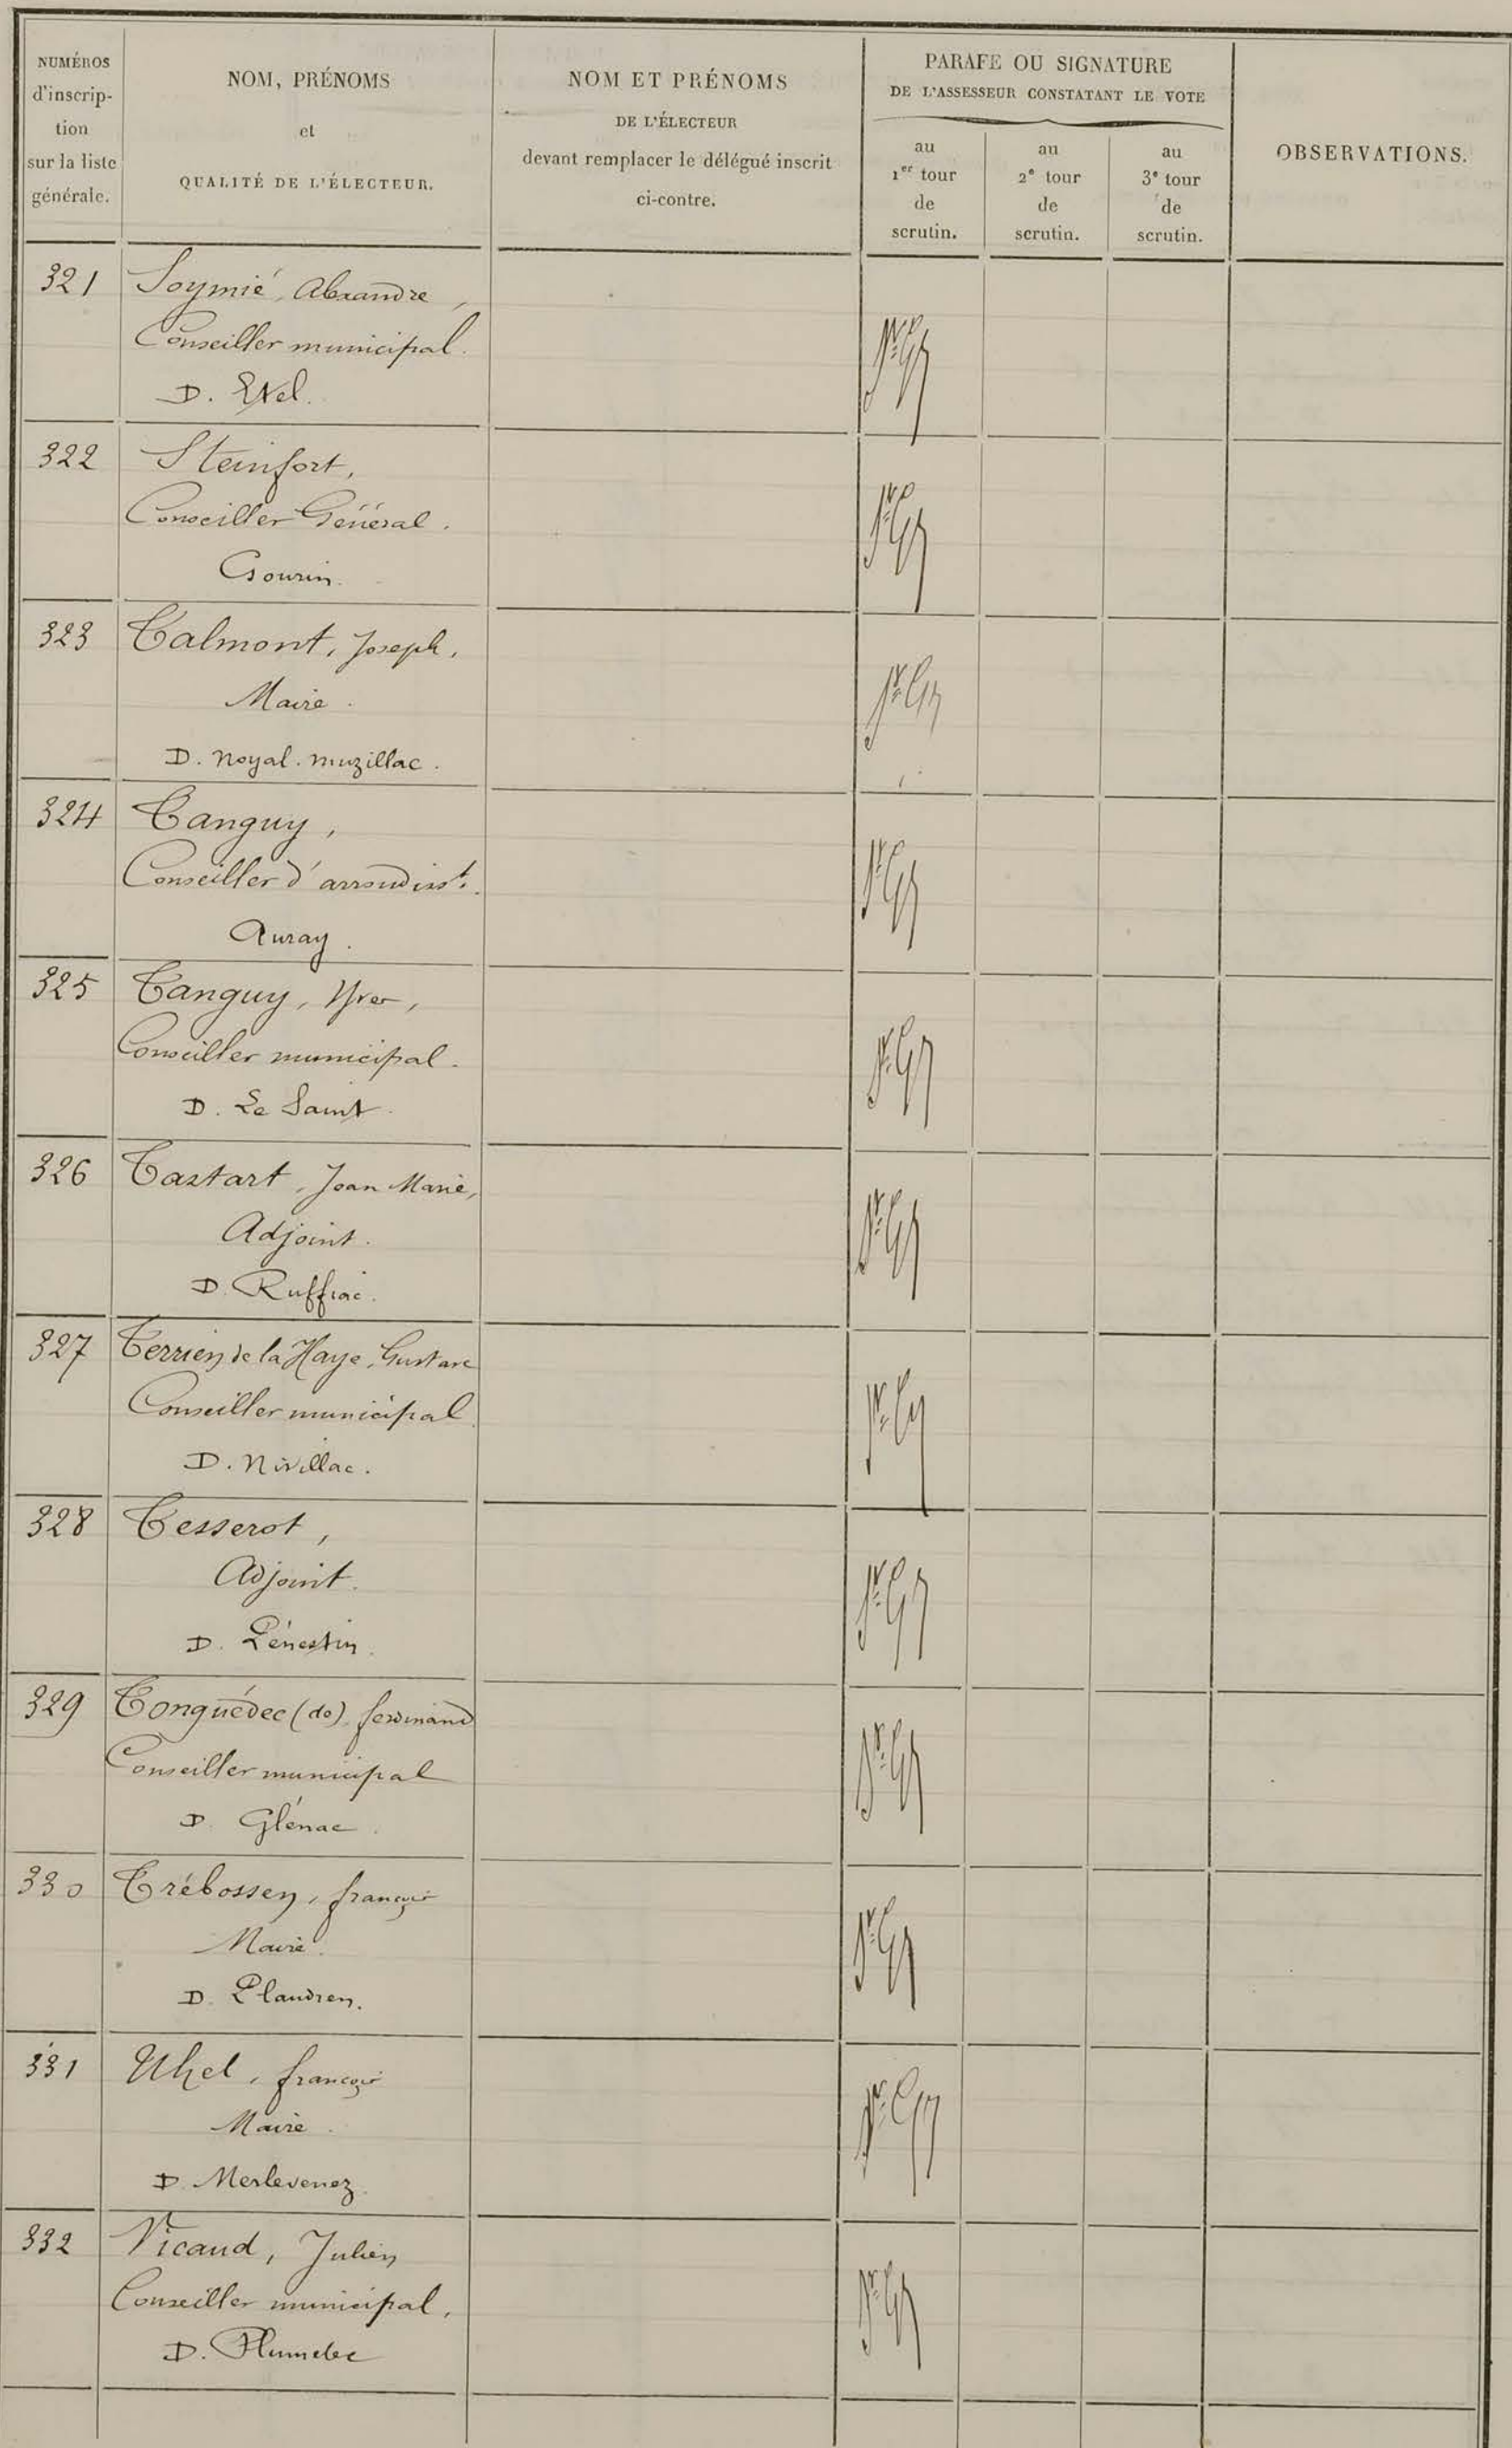 NUMÉROS
d'inscrip-
tion
sur la liste
générale.
NOM, PRÉNOMS
et
QUALITÉ DE L'ÉLECTEUR.
NOM ET PRÉNOMS
DE L'ÉLECTEUR
devant remplacer le délégué inscrit
ci-contre.
PARAFE OU SIGNATURE
DE L'ASSESSEUR CONSTATANT LE VOTE
au
1er tour
de
scrutin.
au
2e tour
de
scrutin.
au
3e tour
de
scrutin.
OBSERVATIONS.
321 Soymié, Alexandre,
Conseiller municipal.
D. Etel.
322 Steinfort,
Conseiller Général.
Gourin.
323 Talmont, Joseph,
Maire.
D. Noyal. muzillac.
324 Tanguy,
Conseiller d'arrondisst.
Auray.
325 Tanguy, Yves,
Conseiller municipal.
D. Le Saint.
326 Tastart, Jean Marie,
Adjoint.
D. Ruffiac.
327 Terrien de la Haye, Gustave
Conseiller municipal
D. Nivillac.
328 Tesserot,
Adjoint.
D. Pénestin.
329 Tonguédec (de), ferdinand
Conseiller municipal
D. Glénac.
330 Trébossen, françois
Maire.
D. Plaudren.
331 Uhel, françois
Maire.
D. Merlevenez.
332 Vicaud, Julien
Conseiller municipal,
D. Plumelec